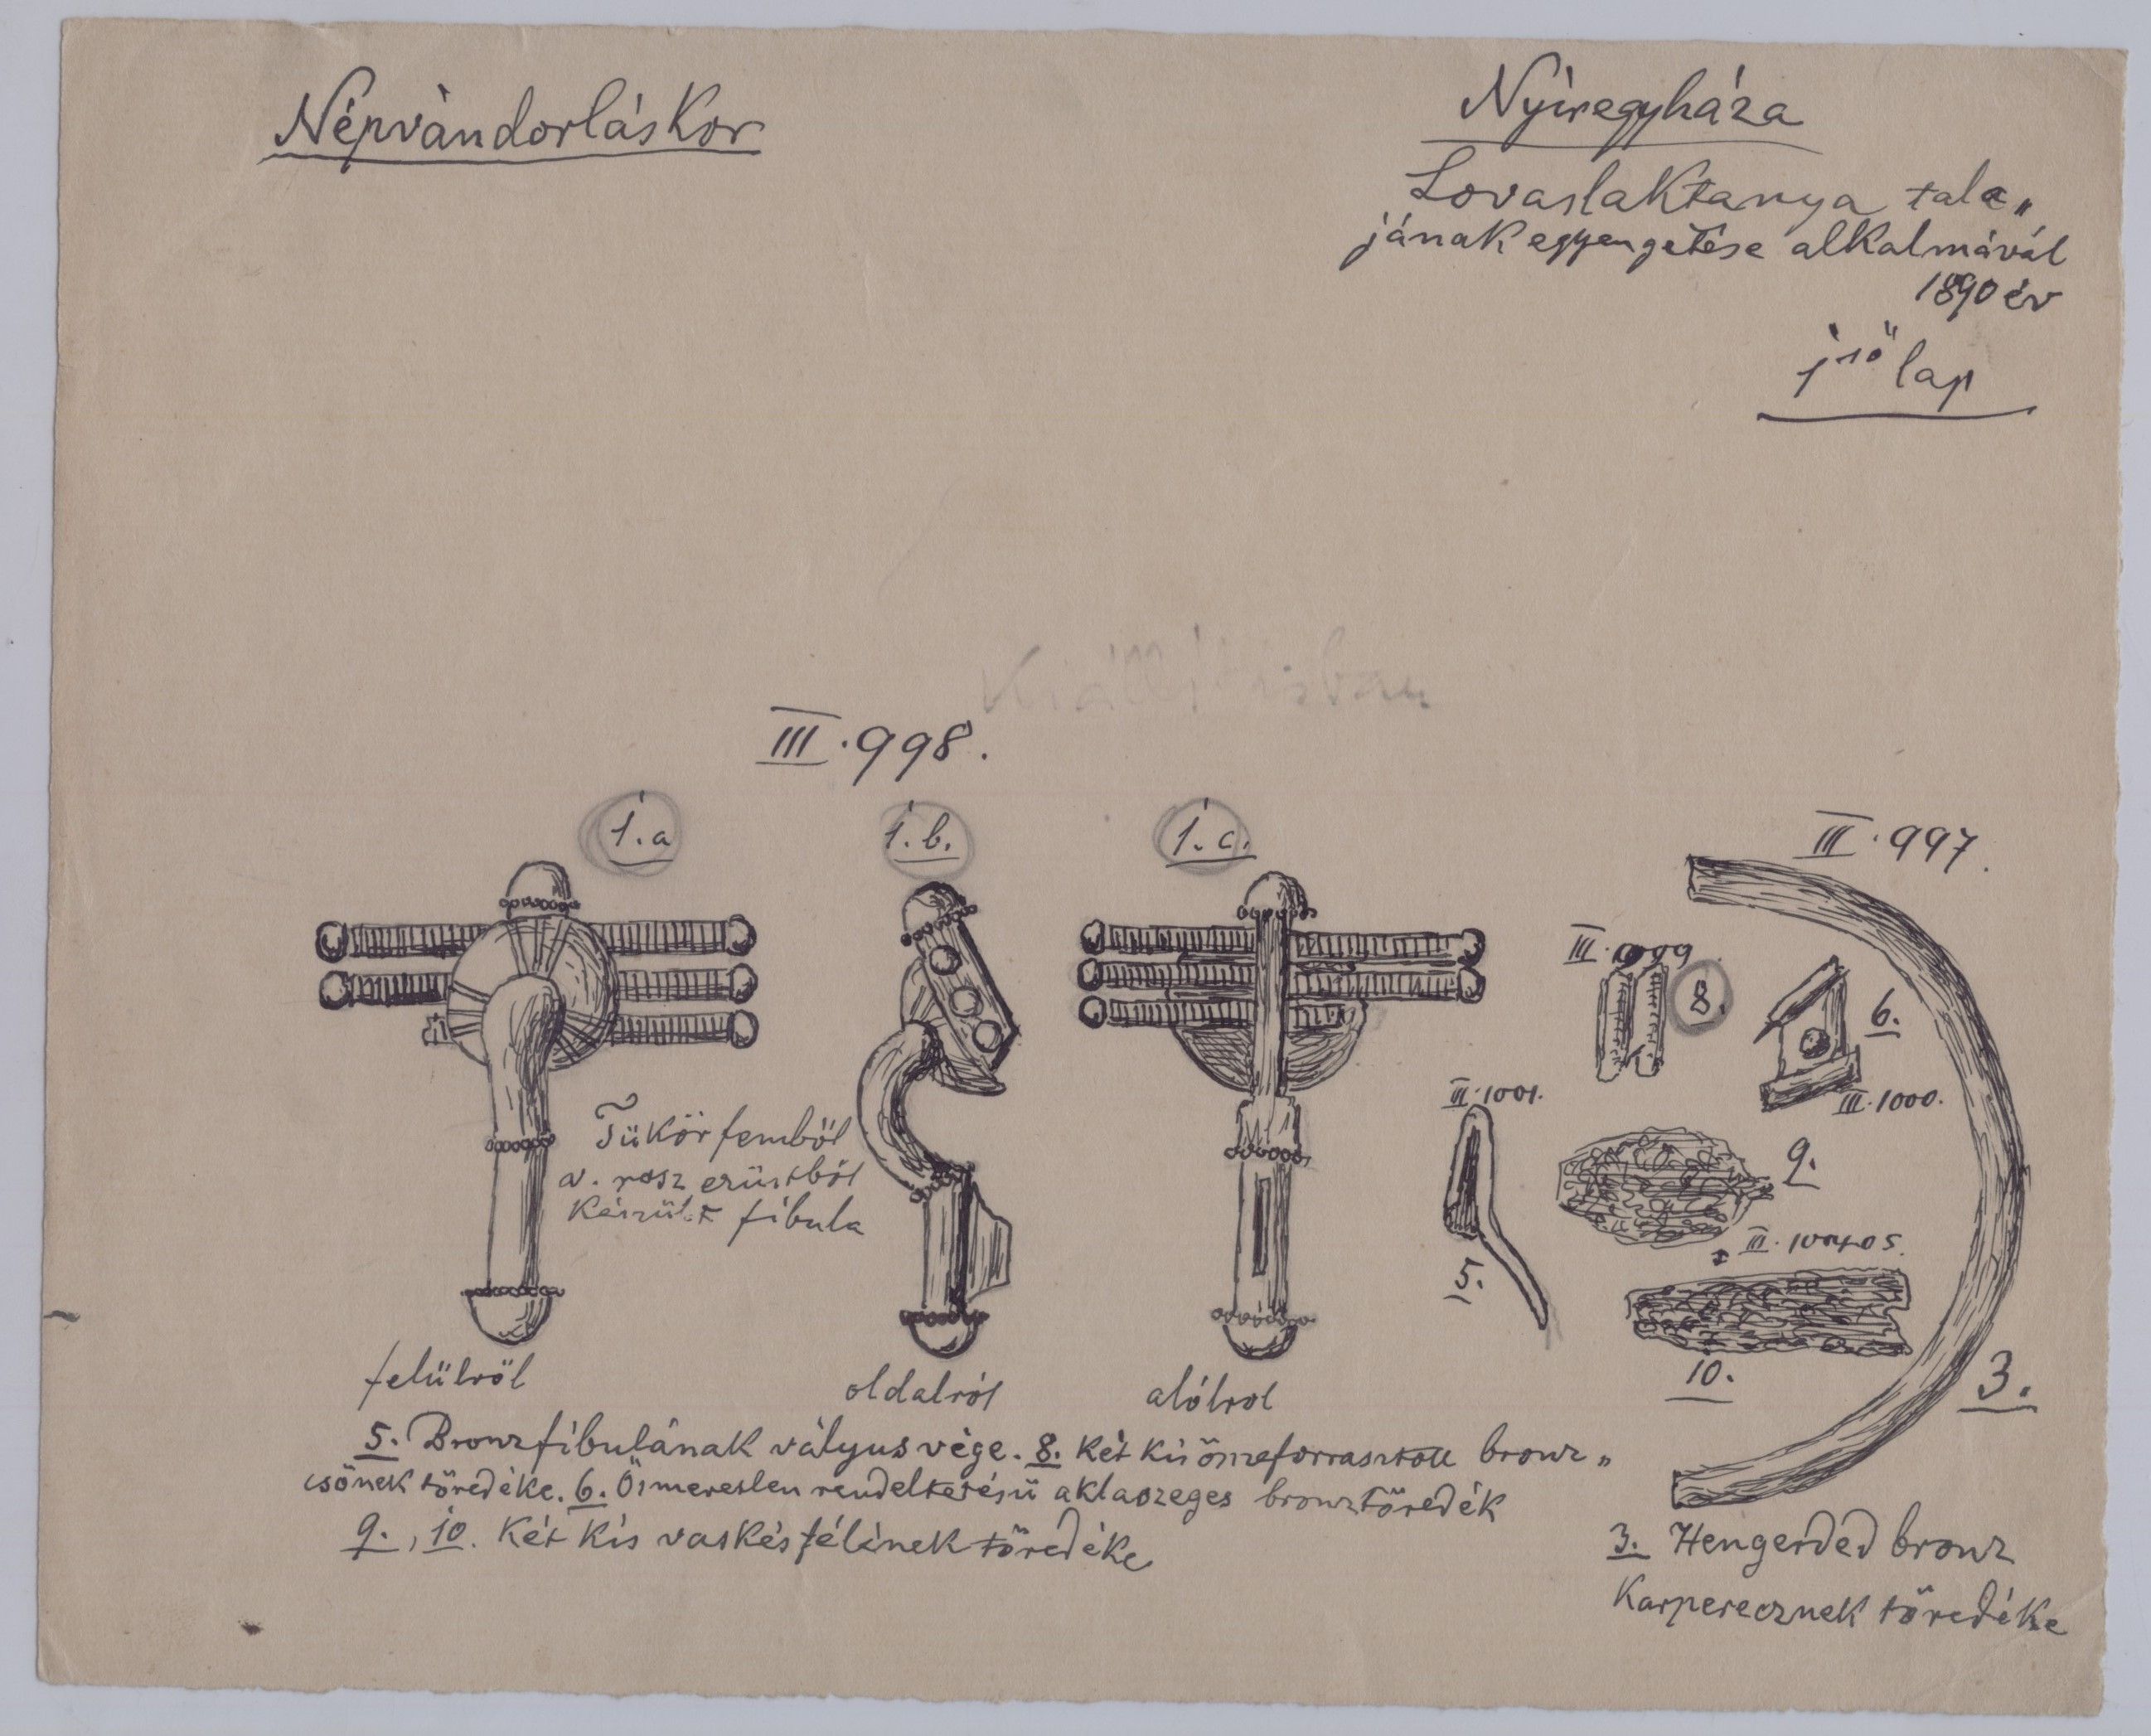 Népvándorláskor
Nyíregyháza
Lovaslaktanya tala„
jának egyengetése alkalmával
1890 év
1ső lap
Kiállításban
III. 998.
1.a
1.b.
1.c.
III. 997.
III. 999
8.
6.
III. 1000.
III. 1001.
9.
Tükörfemből
v. rosz ezüstből
Készült fibula
III.
5.
10.
3.
felülről
oldalról
alólrol
5. Bronzfibulának vályus vége. 8. Két kis összeforrasztott bronz„
csőnek töredéke. 6. Ösmeretlen rendeltetésü bronztöredék
9., 10. Két kis vaskésfélének töredéke
3. Hengerded bronz
Karperecznek töredéke